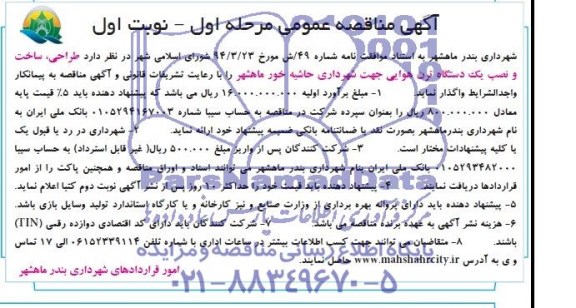 آگهی مناقصه عمومی مرحله اول – نوبت اول
شهرداری بندر ماهشهر به استناد موافقت نامه شماره ۴۹/ش مورخ ۹۴/۳/۲۳ شورای اسلامی شهر در نظر دارد طراحی، ساخت
و نصب یک دستگاه ترن هوایی جهت شهرداری حاشیه خور ماهشهر را با رعایت تشریفات قانونی و آگهی مناقصه به پیمانکار
واجدالشرایط واگذار نماید. ۱- مبلغ برآورد اولیه ۱۶.۰۰۰.۰۰۰.۰۰۰ ریال می باشد که پیشنهاد دهنده باید ۵٪ قیمت پایه
معادل ۸۰۰.۰۰۰.۰۰۰ ریال را بعنوان سپرده شرکت در مناقصه به حساب سیبا شماره ۰۱۰۵۲۹۴۱۶۷۰۰۳ بانک ملی ایران به
نام شهرداری بندرماهشهر بصورت نقد یا ضمانتنامه بانکی ضمیمه پیشنهاد خود ارائه نماید. ۲- شهرداری در رد یا قبول یک
یا کلیه پیشنهادات مختار است. ۳- شرکت کنندگان پس از واریز مبلغ ۵۰۰.۰۰۰ ریال( غیر قابل استرداد) به حساب سیبا
۰۱۰۵۲۹۳۴۸۲۰۰۰ بانک ملی ایران بنام شهرداری بندر ماهشهر می توانند اسناد و اوراق مناقصه و همچنین پاکت را از امور
قراردادها دریافت نمایند. ۴- پیشنهاد دهنده باید قیمت خود را حداکثر ۱۰ روز پس از نشر آگهی نوبت دوم کتبا اعلام نماید.
۵- پیشنهاد دهنده باید دارای پروانه بهره برداری از وزارت صنایع و نیز کارخانه و یا کارگاه استاندارد تولید وسایل بازی باشد.
۶- هزینه نشر آگهی به عهده برنده مناقصه می باشد. ۷- شرکت کنندگان باید دارای کد اقتصادی دوازده رقمی (TIN)
باشند. ۸- متقاضیان می توانند جهت کسب اطلاعات بیشتر در ساعات اداری با شماره تلفن ۰۶۱۵۲۳۳۹۱۱۴ الی ۱۷ تماس
و ی به آدرس www.mahshahrcity.ir حاصل نمایند.
امور قراردادهای شهرداری بندر ماهشهر
ParsNamadData
پایگاه اطلاع رسانی مناقصه و مزایده
۰۲۱-۸۸۳۴۹۶۷۰-۵